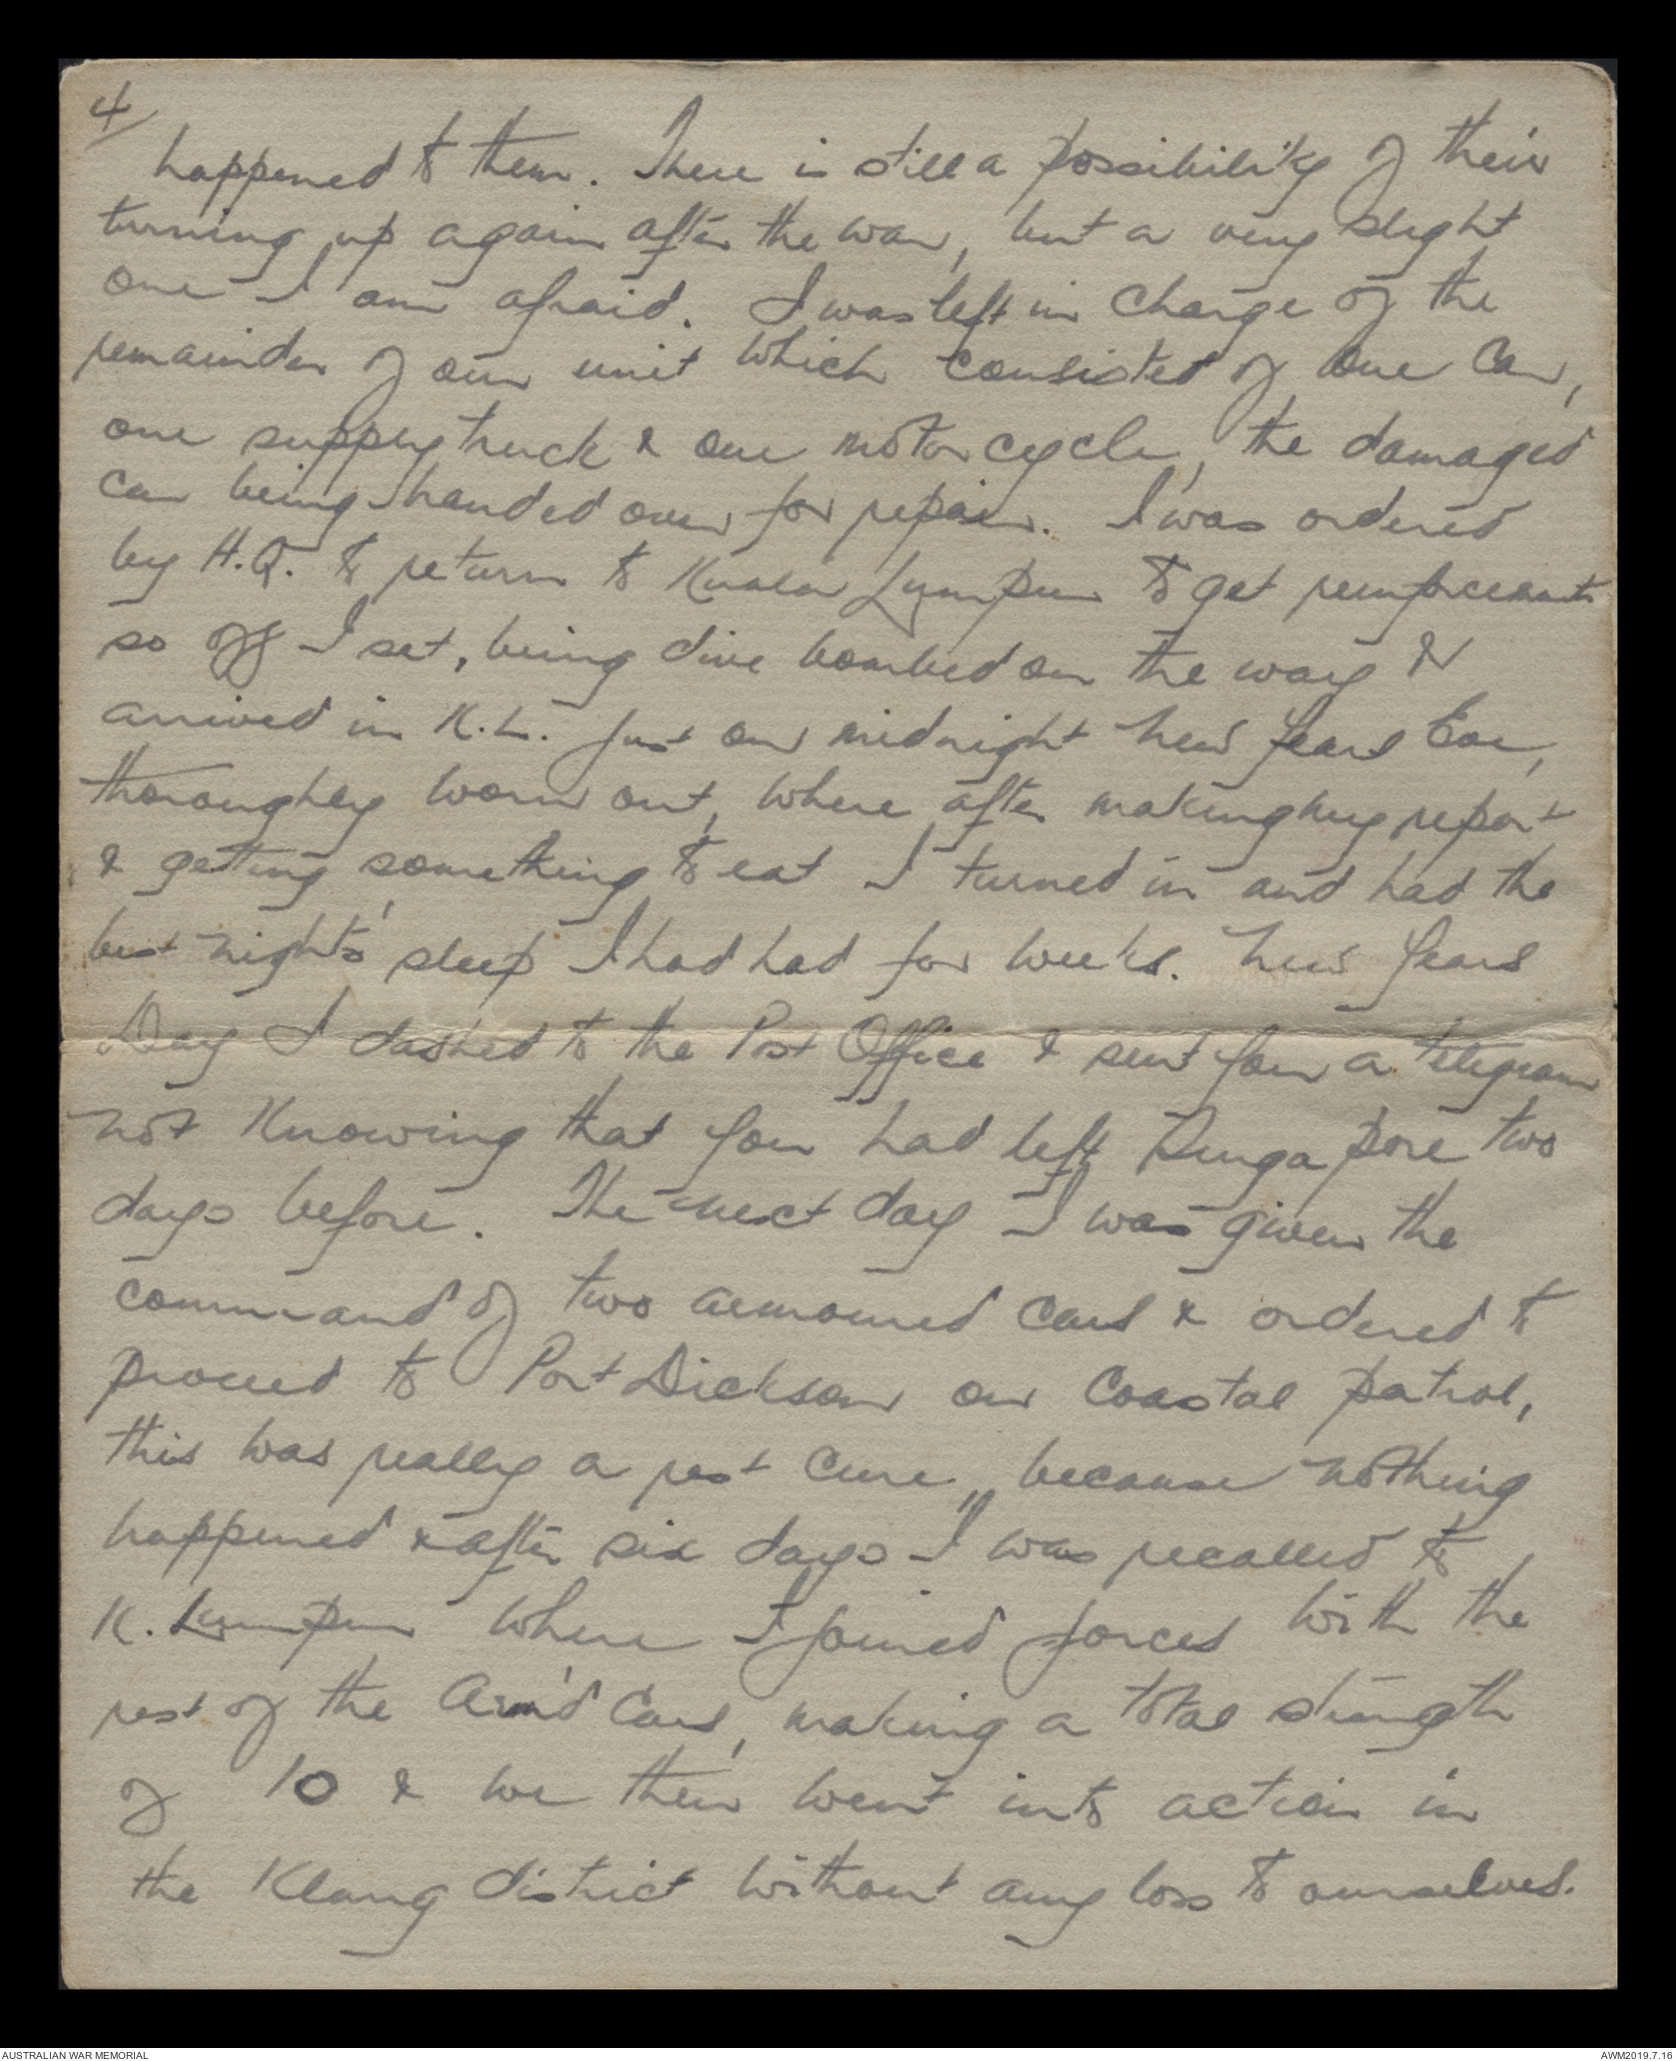 4/
happened to them. There is still a possibility of their
turning up again after the war, but a very slight
one I am afraid. I was left in charge of the
remainder of our unit which consisted of one car,
one supply truck & one motor cycle, the damaged
car being handed over for repair. I was ordered
by H.Q. to return to Kuala Lumpur to get reinforcements
so off I set, being dive bombed on the way &
arrived in K.L. just on midnight New Years Eve,
thoroughly worn out, where after making my report
& getting something to eat I turned in and had the
best night's sleep I had had for weeks. New Years
Day I dashed to the Post Office & sent you a telegram
not knowing that you had left Singapore two
days before. The next day I was given the
command of two armoured cars & ordered to
proceed to Port Dickson on coastal patrol,
this was really a rest cure, because nothing
happened & after six days I was recalled to
K. Lumpur where I joined forces with the
rest of the Arm'd Cars, making a total strength
of 10 & we then went into action in
the Klang district without any loss to ourselves.
AUSTRALIAN WAR MEMORIAL
AWM2019.7.16